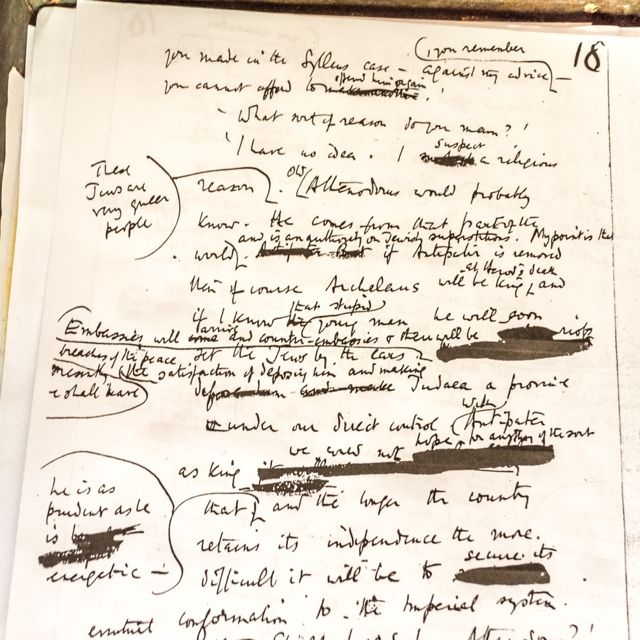 18
you made in the Sylleus case – (you remember
against my advice –
you cannot afford to offend him again!'
'What sort of reason do you mean?'
'I have no idea. I suspect a religious
These
Jews are
very queer
people
reason. Old Athenodorus would probably
know. He comes from that part of the
and is an authority on Jewish superstitions. My point is that
world. if Antipater is removed
then of course Archelaus will be king, at Herod's death and
if I know that stupid young man he will soon
Embassies will and counter-embassies & there will be riots
breaches of the peace, set the Jews by the ears
the satisfaction of deposing him and making
we shall have
Judaea a province
under our direct control. With Antipater
we could not hope for anything of the sort
as king
he is as
prudent as he
is
energetic –
that and the longer the country
retains its independence the more
difficult it will be to secure its
eventual conformation to the Imperial system.